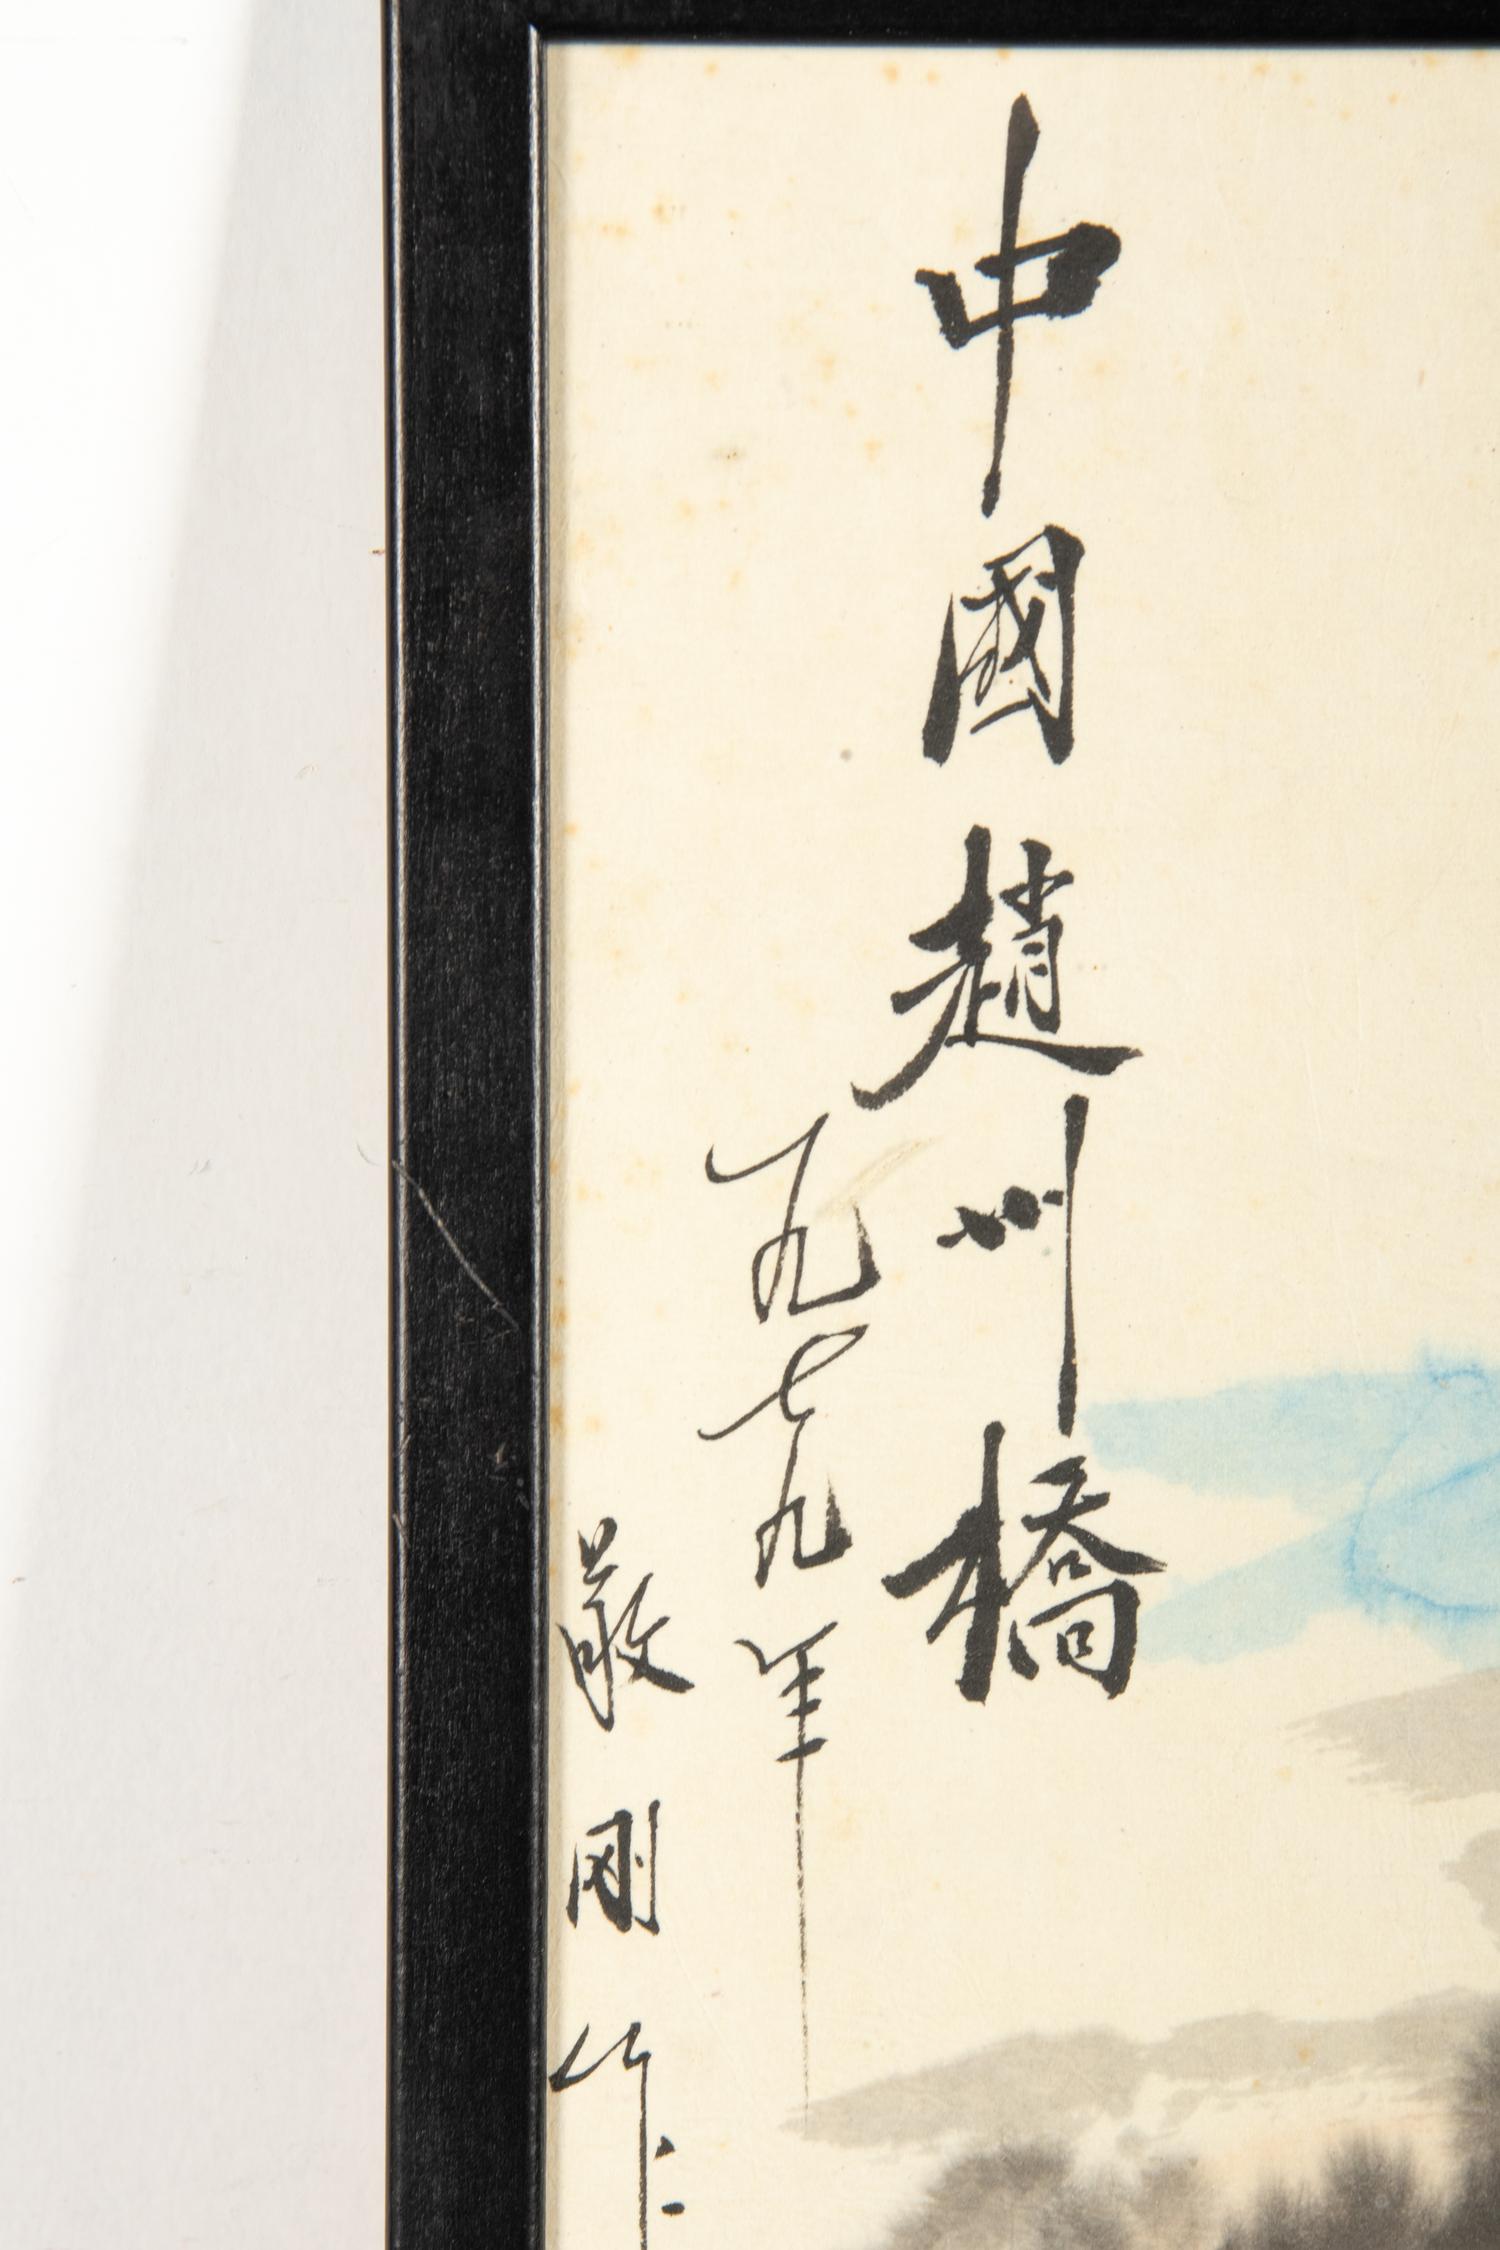 中國趙州橋
一九七九年
嚴剛作